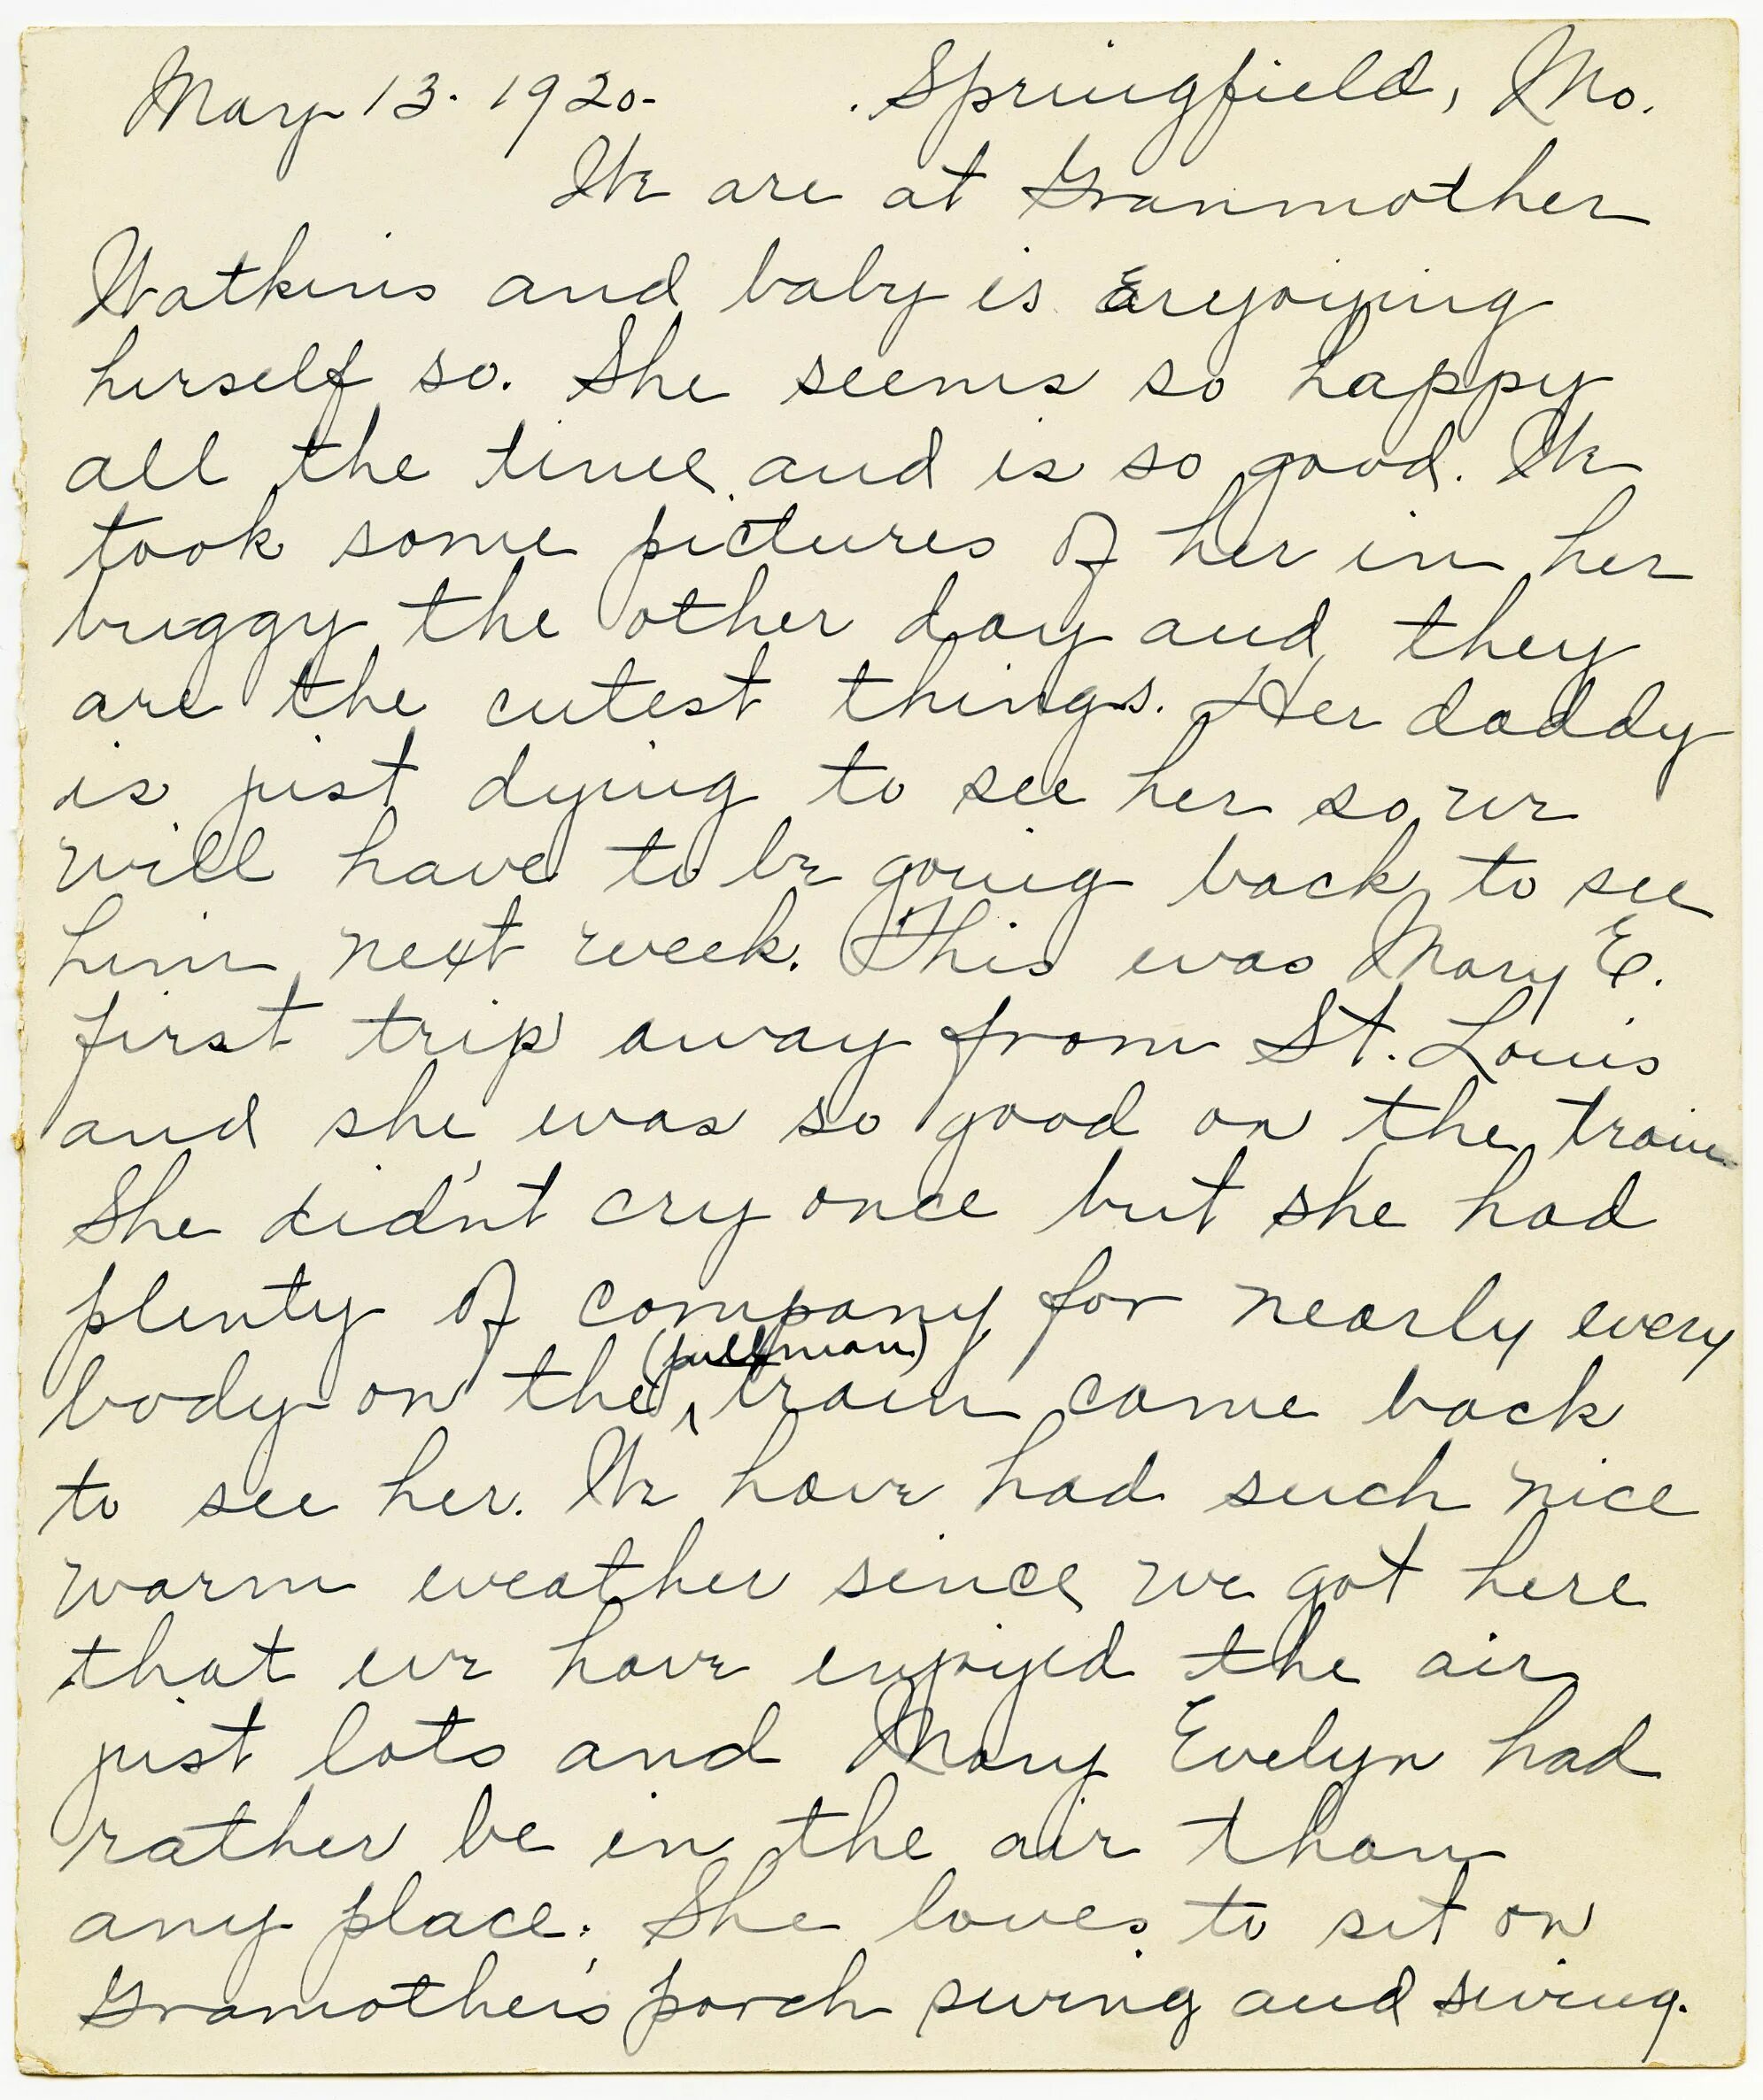 May 13. 1920- Springfield, Mo.
We are at Granmother
Watkins and baby is Enjoying
herself so. She seems so happy
all the time and is so good. We
took some pictures of her in her
buggy the other day and they
are the cutest things. Her daddy
is just dying to see her so we
will have to be going back to see
him next week. This was Mary E.
first trip away from St. Louis
and she was so good on the train
She did'nt cry once but she had
plenty of company for nearly every
(pullman)
body on the train came back
to see her. We have had such nice
warm weather since we got here
that we have enjoyed the air
just lots and Mary Evelyn had
rather be in the air than
any place. She loves to sit on
Gramother's porch swing and swing.